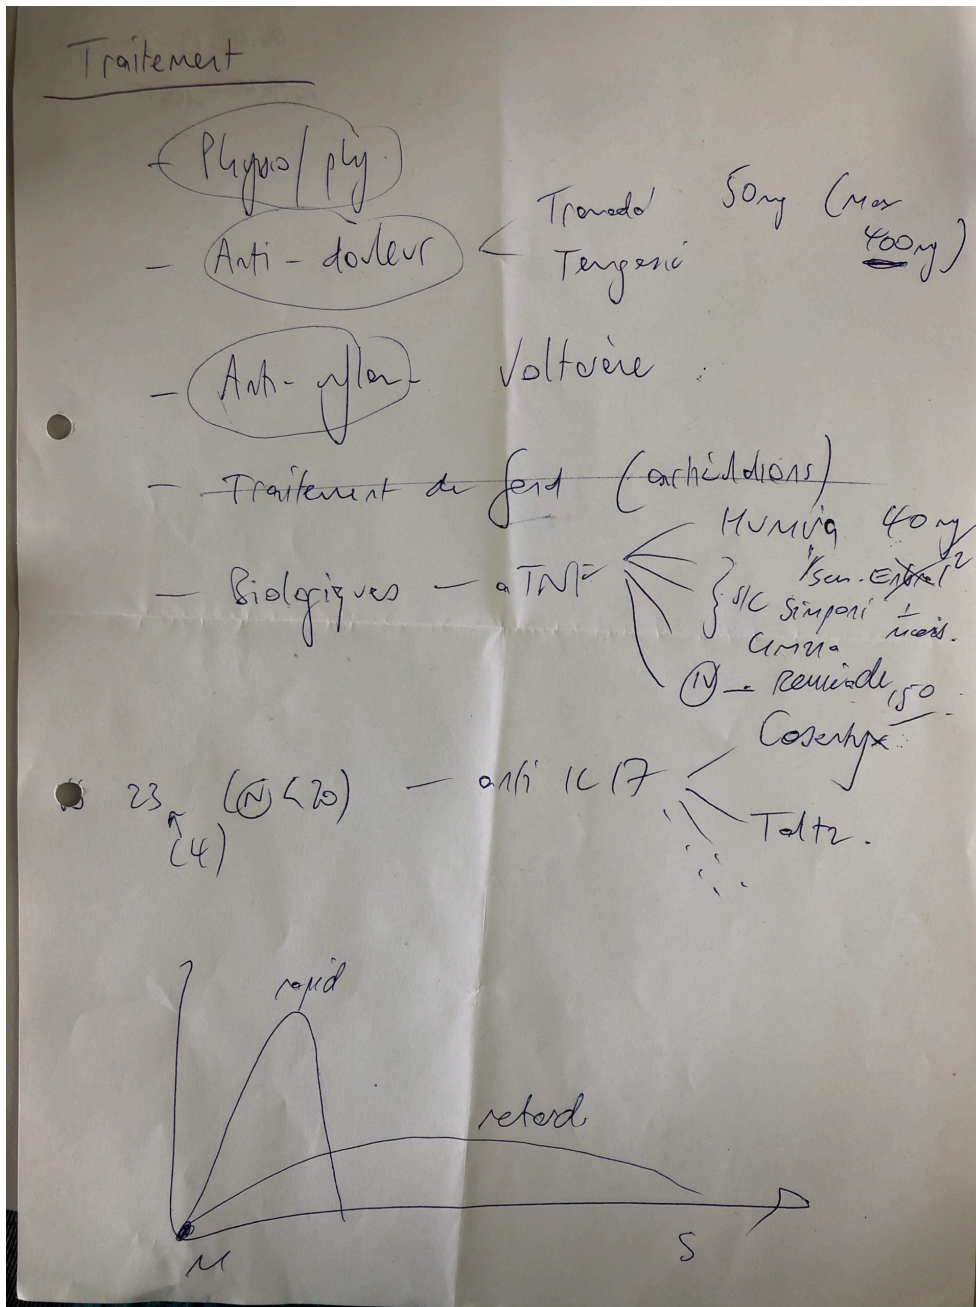 Traitement
- Physio / phy.
- Anti-douleur < Tramadol 50mg (Max 400mg)
Temgesic
- Anti-inflam- Voltarène
- Traitement de fond
- Biologiques - aTNF Humira 40mg
1/sem. Enbrel 2
S/C Simponi 1 mois.
Cimzia
(IV) - Remicade
23 (N<20) - anti IL17 Cosentyx
(4) Taltz.
rapid
retard
M S